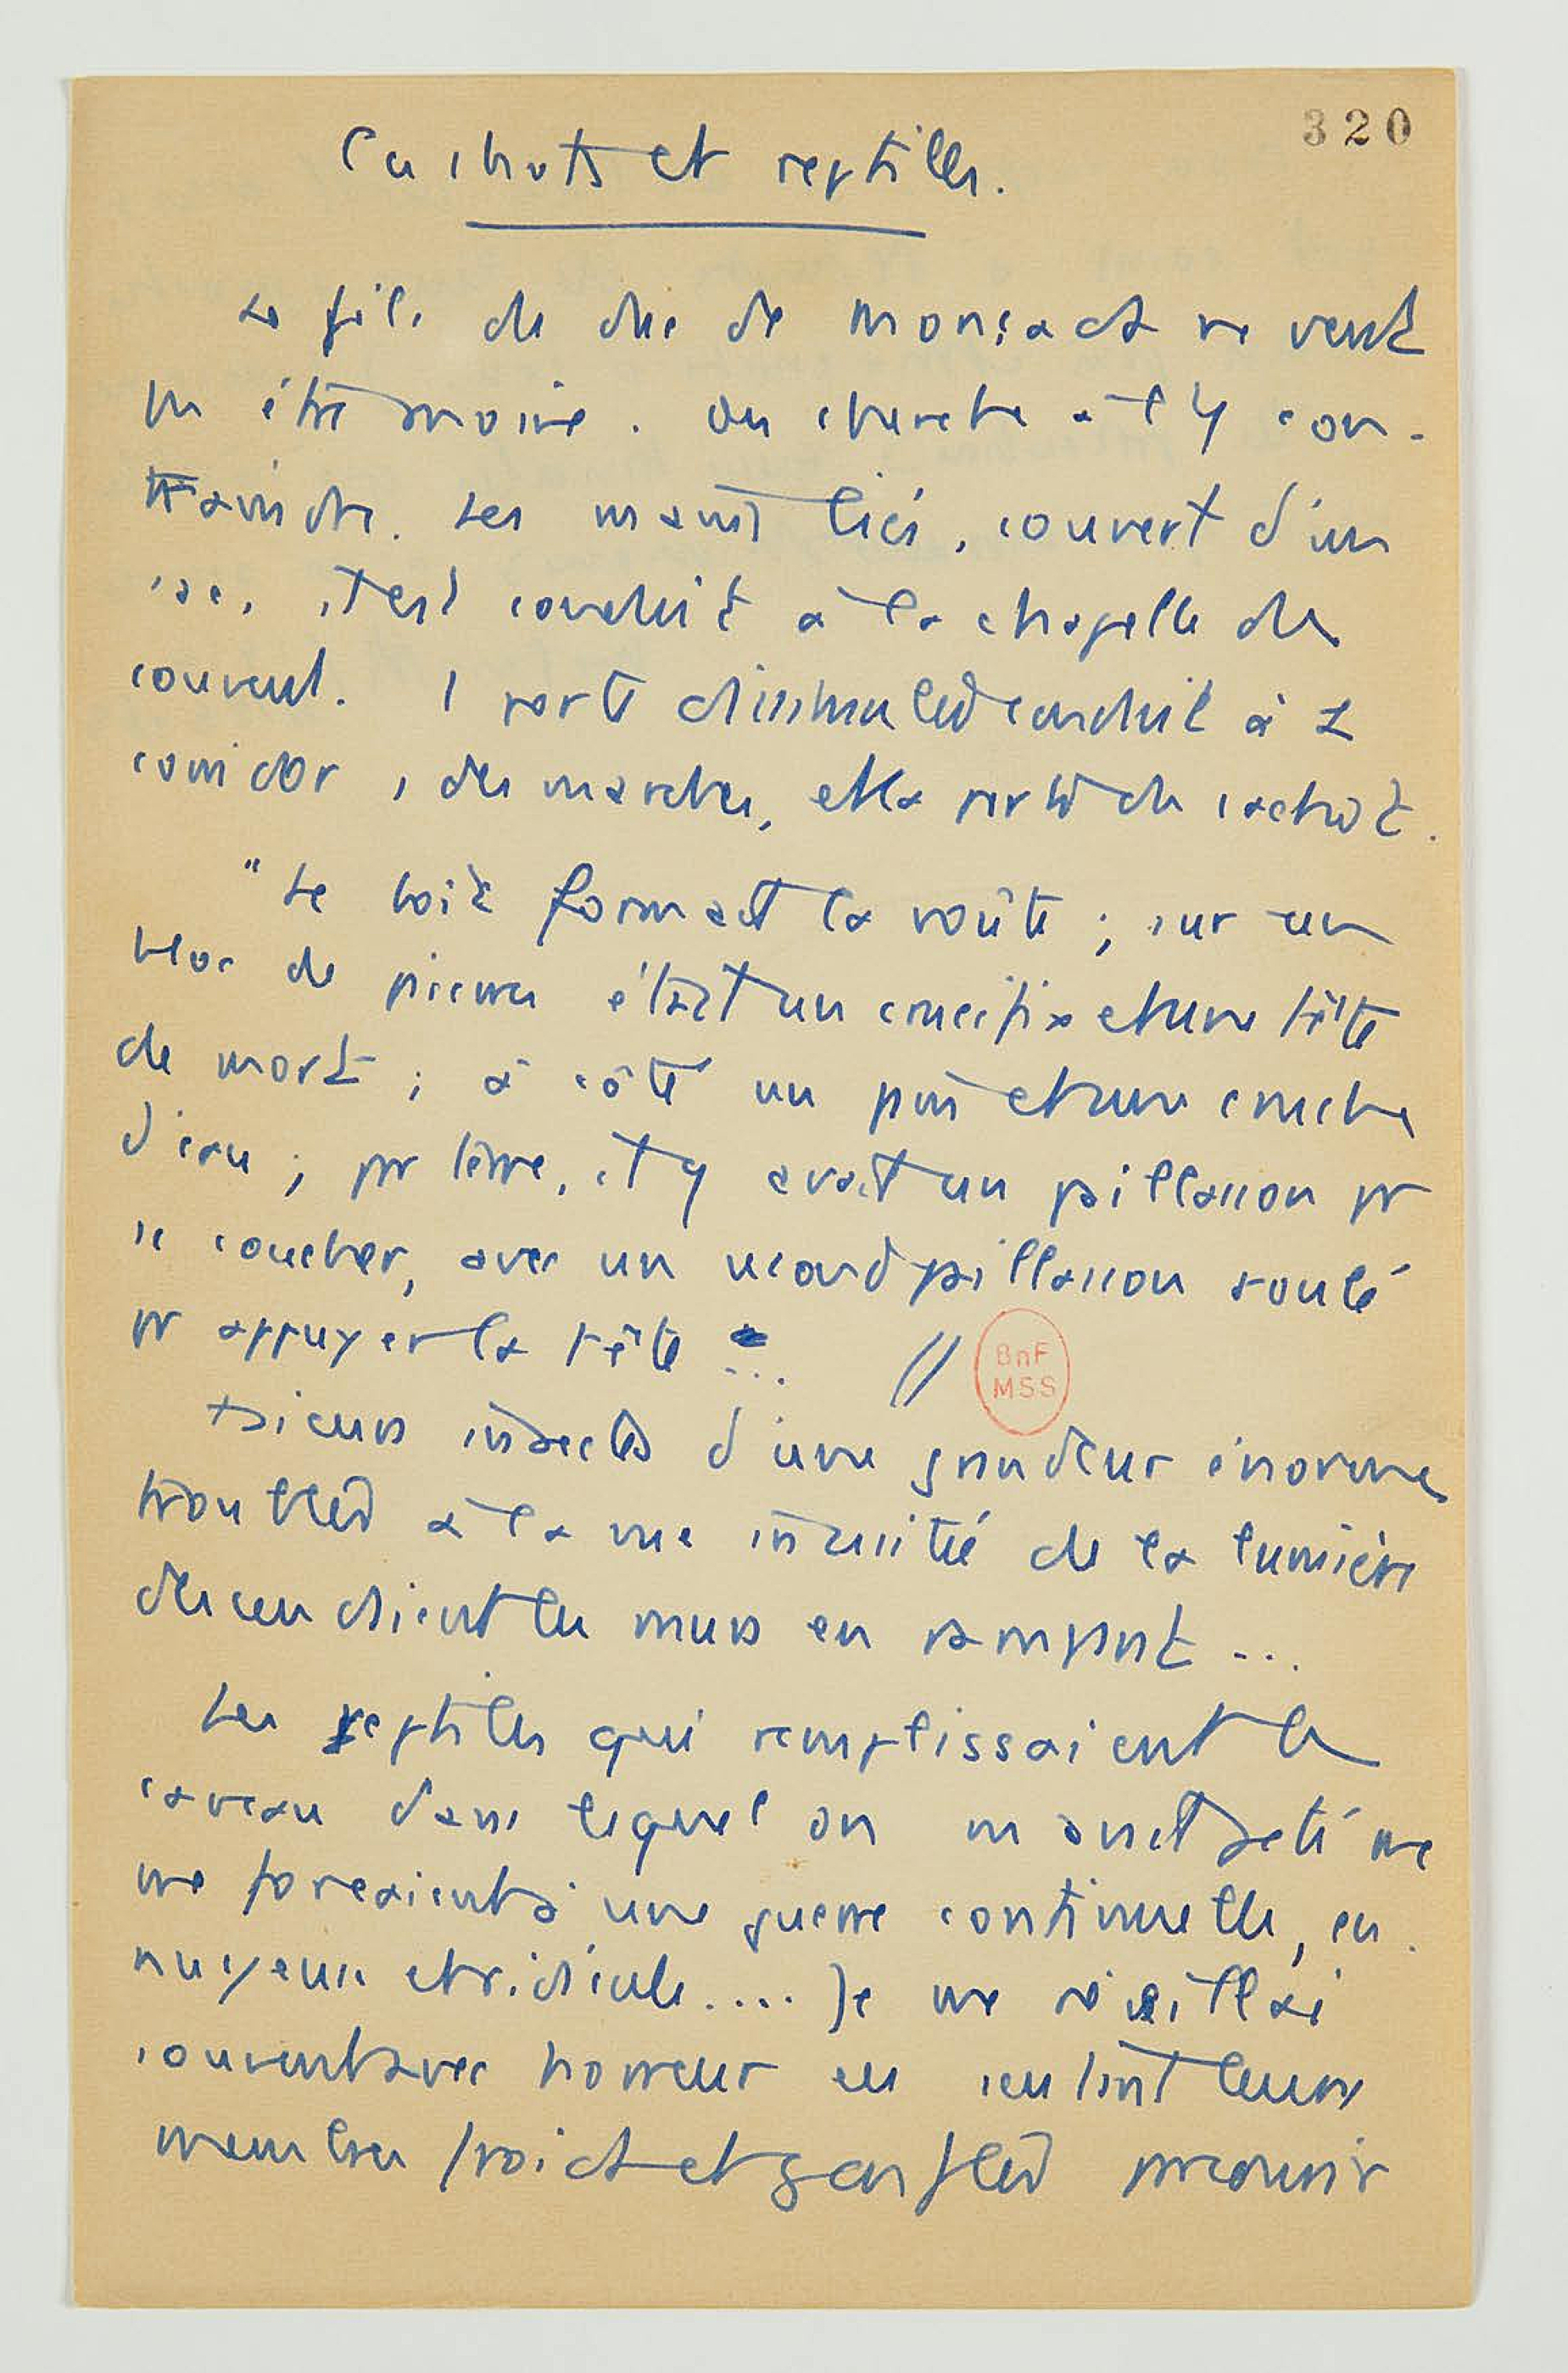 320
Cachots et reptiles.
Le fils du duc de Monçada ne veut
pas être moine. On cherche à l'y con-
traindre. Les mains liées, couvert d'un
sac, il est conduit à la chapelle du
couvent. 1 porte dissimulée conduit à 1
corridor, des marches, et la porte du cachot.
"Le toit formait la voûte ; sur un
bloc de pierre était un crucifix et une tête
de mort ; à côté un pain et une cruche
d'eau ; par terre, il y avait un paillasson pr
se coucher, avec un second paillasson roulé
pr appuyer la tête ... //
BnF
MSS
+sieurs insectes d'une grandeur énorme
troublés à la vue inusitée de la lumière
descendaient les murs en rampant ...
Les reptiles qui remplissaient le
caveau dans lequel on m'avait jeté me
me forçaient à une guerre continuelle, en-
nuyeuse et ridicule.... Je me réveillai
souvent avec horreur en sentant leurs
membres froids et gonflés parcourir